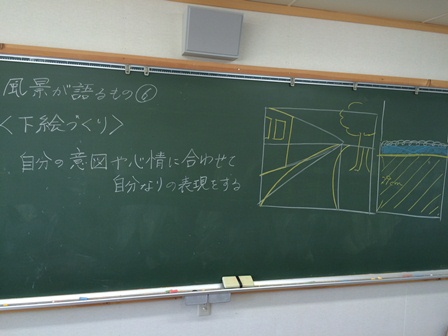 風景が語るもの⑥
〈下絵づくり〉
自分の意図や心情に合わせて
自分なりの表現をする